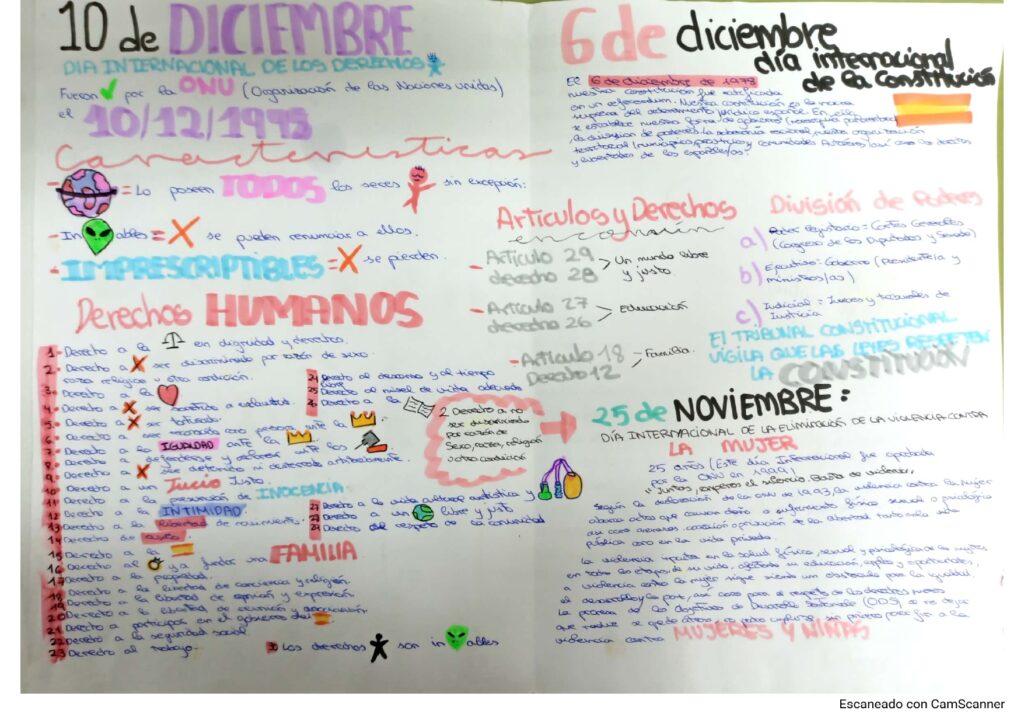 10 de DICIEMBRE
DIA INTERNACIONAL DE LOS DERECHOS
Fueron por la ONU (Organización de las Naciones unidas)
el 10/12/1948
Características
- = Lo poseen TODOS los seres sin excepción.
- In ables = X se pueden renunciar a ellos.
- IMPRESCRIPTIBLES = X se pierden.
Derechos HUMANOS
1- Derecho a la en dignidad y derechos.
2- Derecho a X ser discriminado por razón de sexo
raza religion u otra condición.
3- Derecho a la
4- Derecho a X ser sometido a esclavitud.
5- Derecho a X ser torturado.
6- Derecho a ser reconocido como persona ante la
7- Derecho a la IGUALDAD ante la
8- Derecho a defenderse y ante los
9- Derecho a X ser detenido ni desterrado arbitrariamente.
10- Derecho a un Juicio Justo.
11- Derecho a la presunción de INOCENCIA.
12- Derecho a la INTIMIDAD
13- Derecho a la libertad de movimiento.
14- Derecho de asilo.
15- Derecho a la
16- Derecho al y a fundar una FAMILIA
17- Derecho a la propiedad.
18- Derecho a la libertad de conciencia y religión.
19- Derecho a la libertad de opinión y expresión
20- Derecho a la libertad de reunión y asociación.
21- Derecho a participar en el gobierno del
22- Derecho a la seguridad social
23 Derecho al trabajo.
24 Derecho al descanso y al tiempo
libre
25 Derecho al nivel de vida adecuado
26 Derecho a la
2 Derecho a no
ser discriminado
por razón de
sexo, raza, religion
u otra condición
27 Derecho a la vida cultural artística y
Derecho a un libre y justo
Derecho al respeto de la comunidad
30 Los derechos son in ables
6 de diciembre
día internacional
de la Constitución
El 6 de diciembre de 1978
nuestra constitución fue ratificada
en un referendum. Nuestra constitución es la norma
suprema del ordenamiento jurídico español. En ella
se establece nuestra forma de gobierno (monarquía parlamentaria)
la division de poderes, la soberanía nacional, nuestra organización
territorial (municipios, provincias y comunidades Autónomas) así como los derechos
y libertades de los españoles/as.
Artículos y Derechos
en común
- Artículo 29
derecho 28 > Un mundo libre
y justo
- Artículo 27
derecho 26 > Educación
- Artículo 18
Derecho 12 > Familia.
División de Podres
a) Poder legislativo = Cortes Generales
(Congreso de los Diputados y Senado)
b) Ejecutivo = Gobierno (Presidente/a y
ministros/as)
c) Judicial = Jueces y tribunales de
Justicia
El TRIBUNAL CONSTITUCIONAL
VIGILA QUE LAS LEYES RESPETEN
LA CONSTITUCIÓN
25 de NOVIEMBRE:
DÍA INTERNACIONAL DE LA ELIMINACIÓN DE LA VIOLENCIA CONTRA
LA MUJER
25 años (Este día Internacional fue aprobada
por la ONU en 1999)
"Juntas, rompemos el silencio. Basta de violencia"
Según la declaración de la ONU de 1993, la violencia contra la Mujer
abarca actos que causen daño o sufrimiento físico, sexual o psicológico
así como amenazas, coacción o privación de la libertad, tanto en la vida
pública como en la vida privada.
La violencia impacta en la salud física, sexual y psicológica de las mujeres
en todas las etapas de su vida, afectando su educación, empleo y oportunidades,
violencia contra la mujer sigue siendo un obstáculo para la igualdad,
el desarrollo y la paz, así como para el respeto de los derechos
La promesa de los objetivos de Desarrollo Sostenible (ODS) de no dejar
que nadie se quede atrás no puede cumplirse sin primero poner fin a la
violencia contra MUJERES Y NIÑAS
Escaneado con CamScanner